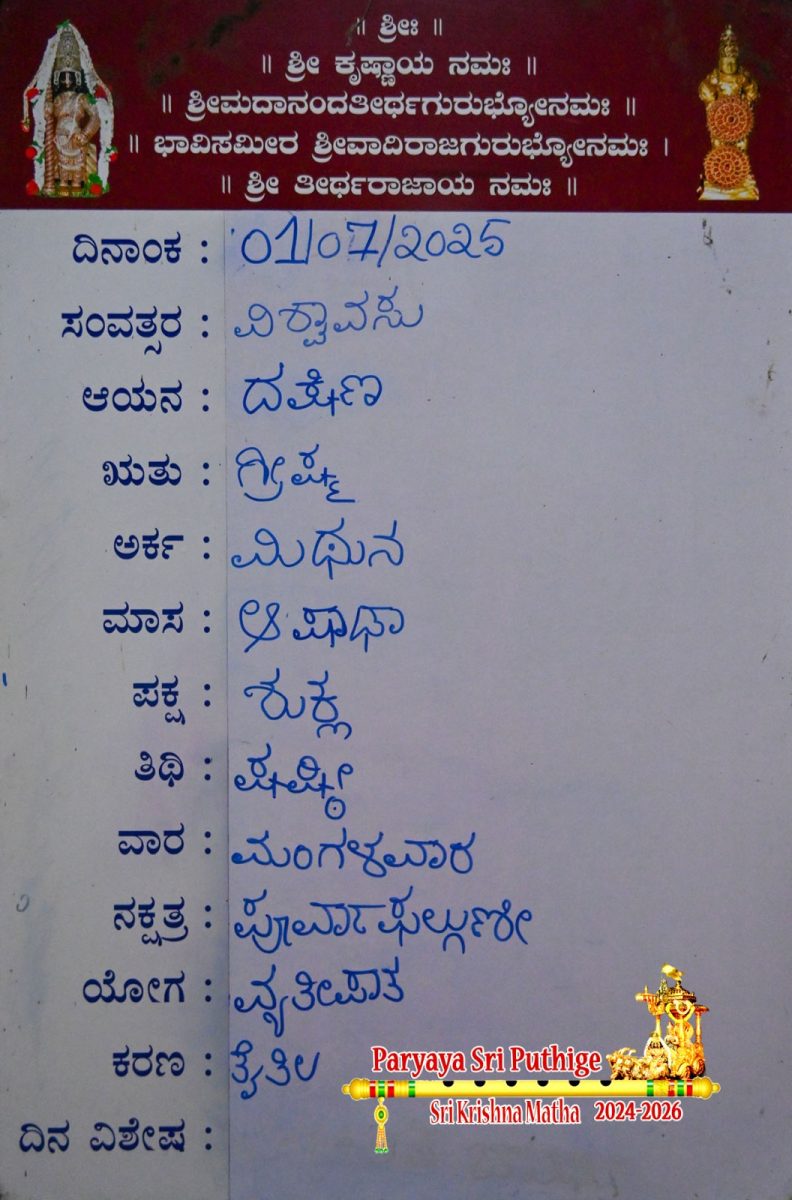 ॥ ಶ್ರೀಃ ॥
॥ ಶ್ರೀ ಕೃಷ್ಣಾಯ ನಮಃ ॥
॥ ಶ್ರೀಮದಾನಂದತೀರ್ಥಗುರುಭ್ಯೋನಮಃ ॥
॥ ಭಾವಿಸಮೀರ ಶ್ರೀವಾದಿರಾಜಗುರುಭ್ಯೋನಮಃ ।
॥ ಶ್ರೀ ತೀರ್ಥರಾಜಾಯ ನಮಃ ॥
ದಿನಾಂಕ : 01/07/2025
ಸಂವತ್ಸರ : ವಿಶ್ವಾವಸು
ಆಯನ : ದಕ್ಷಿಣ
ಋತು : ಗ್ರೀಷ್ಮ
ಅರ್ಕ : ಮಿಥುನ
ಮಾಸ : ಆಷಾಢಾ
ಪಕ್ಷ : ಶುಕ್ಲ
ತಿಥಿ : ಷಷ್ಠೀ
ವಾರ : ಮಂಗಳವಾರ
ನಕ್ಷತ್ರ : ಪೂರ್ವಾಫಲ್ಗುಣೀ
ಯೋಗ : ವ್ಯತೀಪಾತ
ಕರಣ : ತೈತಿಲ
ದಿನ ವಿಶೇಷ :
Paryaya Sri Puthige
Sri Krishna Matha 2024-2026